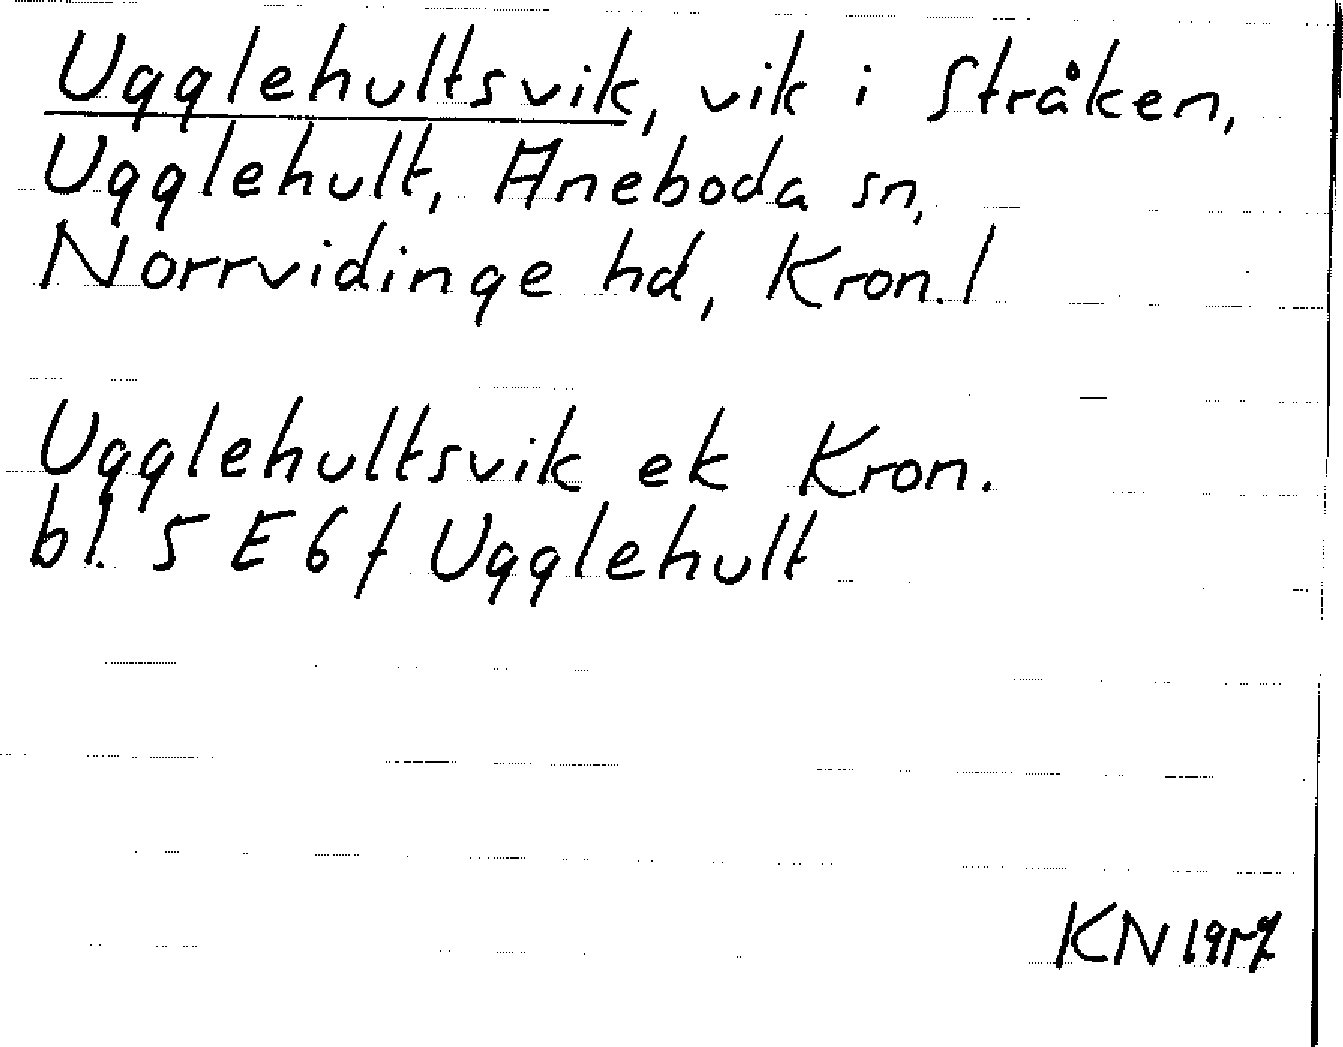 Ugglehultsvik, vik i Stråken,
Ugglehult, Aneboda sn,
Norrvidinge hd, Kron. l
Ugglehultsvik ek Kron.
bl. 5 E 6 f Ugglehult
KN 1957